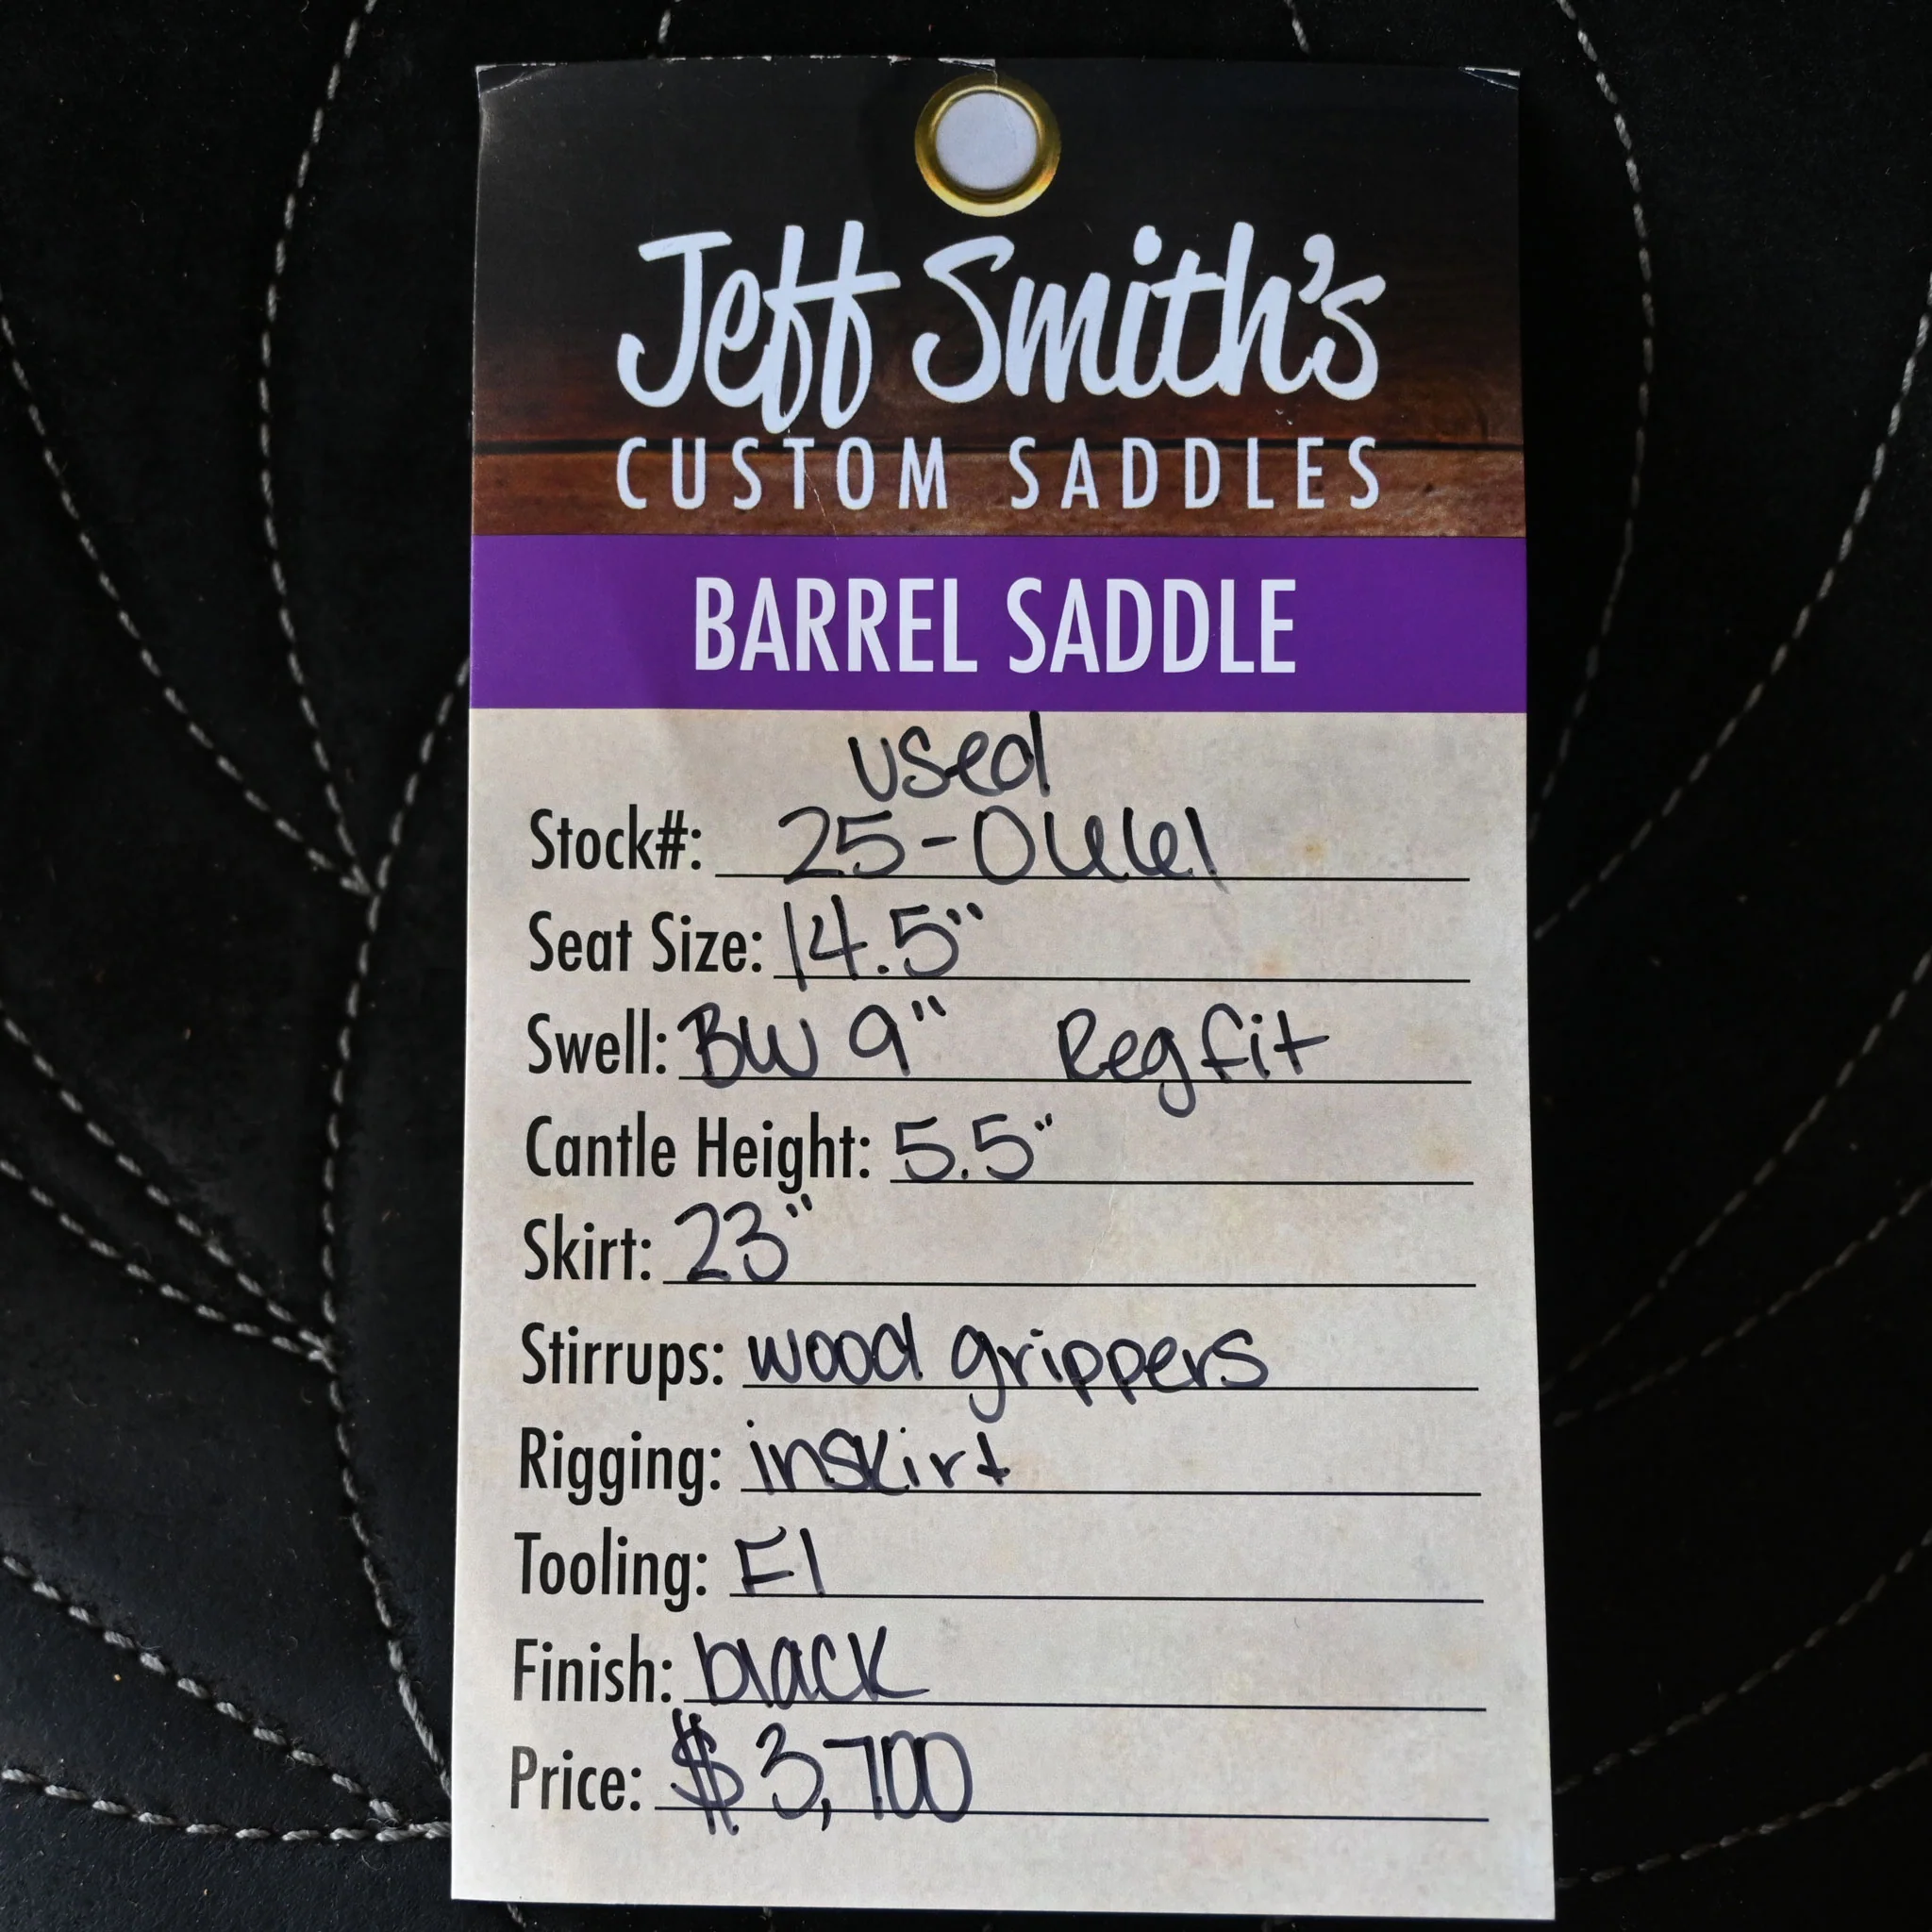 Jeff Smith's
CUSTOM SADDLES
BARREL SADDLE
used
Stock#: 25-0661
Seat Size: 14.5"
Swell: BW 9" Reg fit
Cantle Height: 5.5"
Skirt: 23"
Stirrups: wood grippers
Rigging: inskirt
Tooling: E1
Finish: black
Price: $3,700